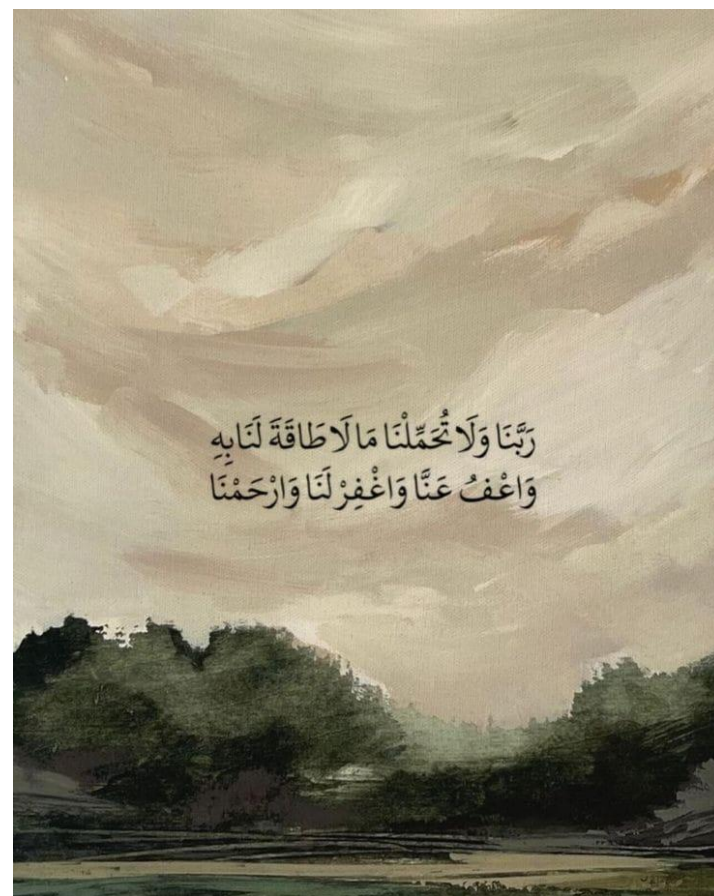 رَبَّنَا وَلَا تُحَمِّلْنَا مَا لَا طَاقَةَ لَنَا بِهِ
وَاعْفُ عَنَّا وَاغْفِرْ لَنَا وَارْحَمْنَا